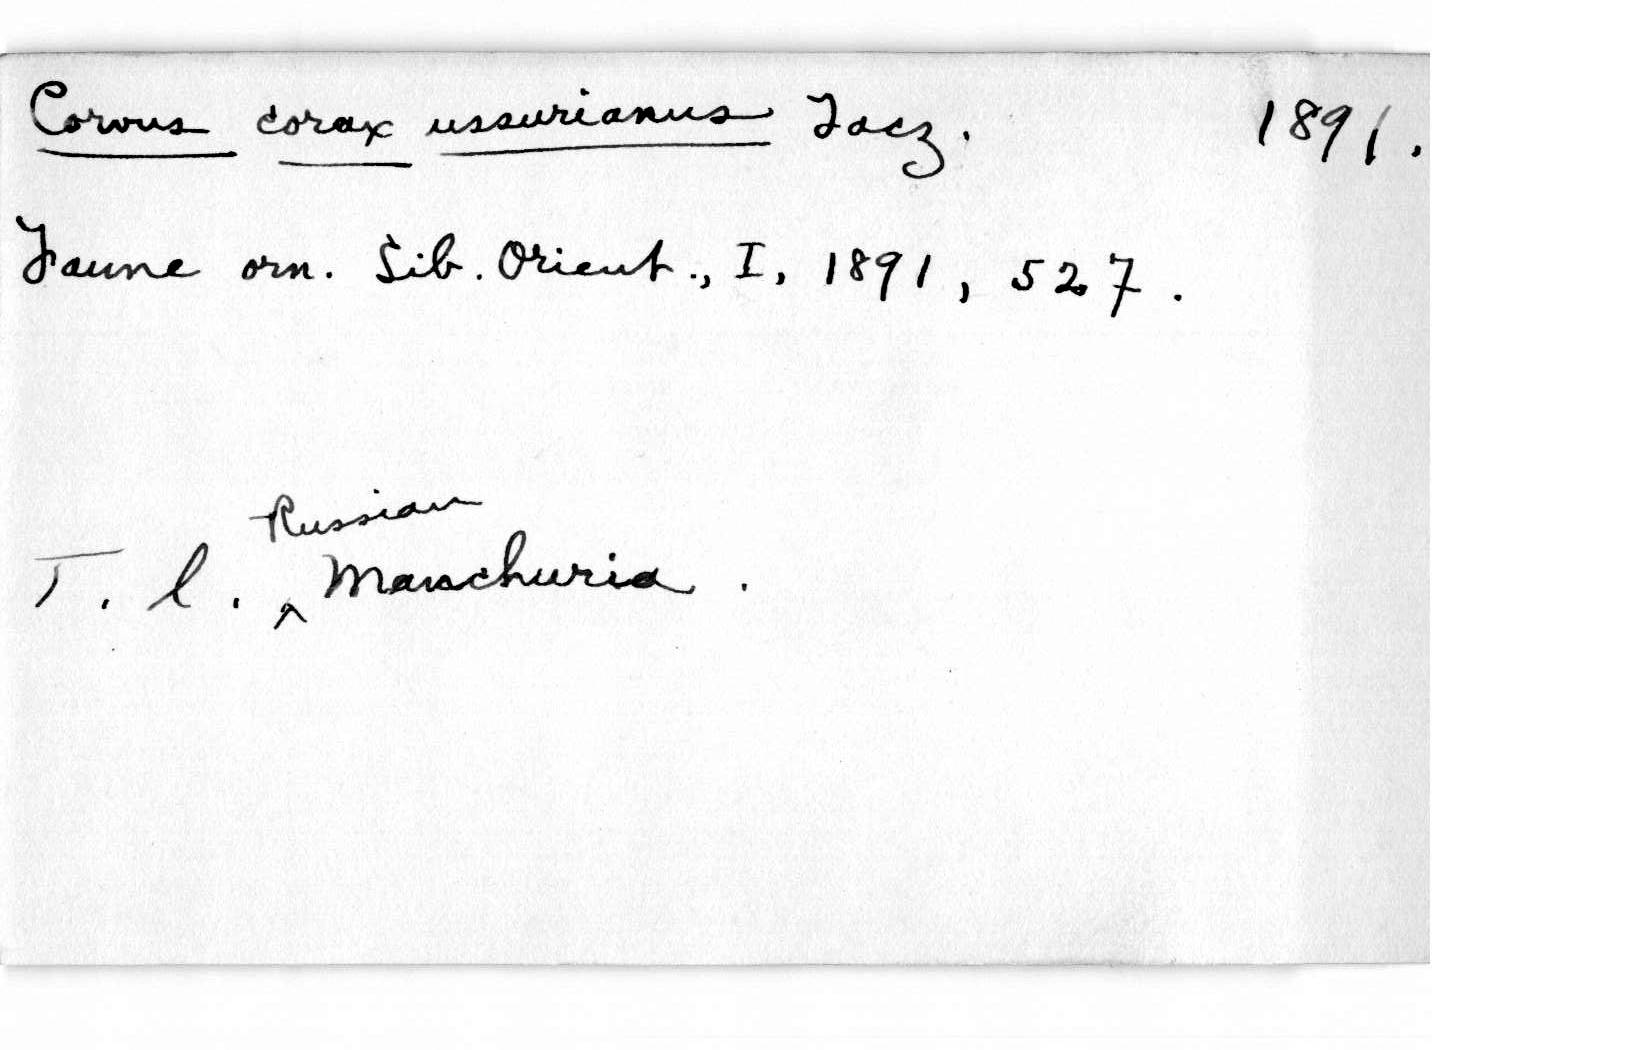 Corvus corax ussurianus Tacz. 1891.
Faune orn. Sib. Orient., I, 1891, 527.
T. l. Russian Manchuria.